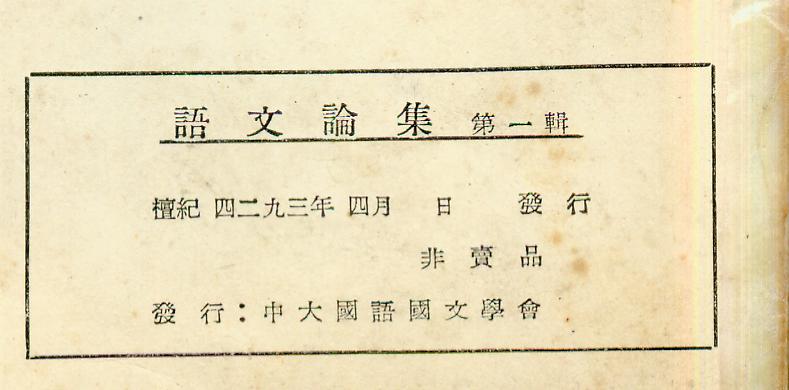 語文論集 第一輯
檀紀 四二九三年 四月 日 發行
非賣品
發行：中大國語國文學會